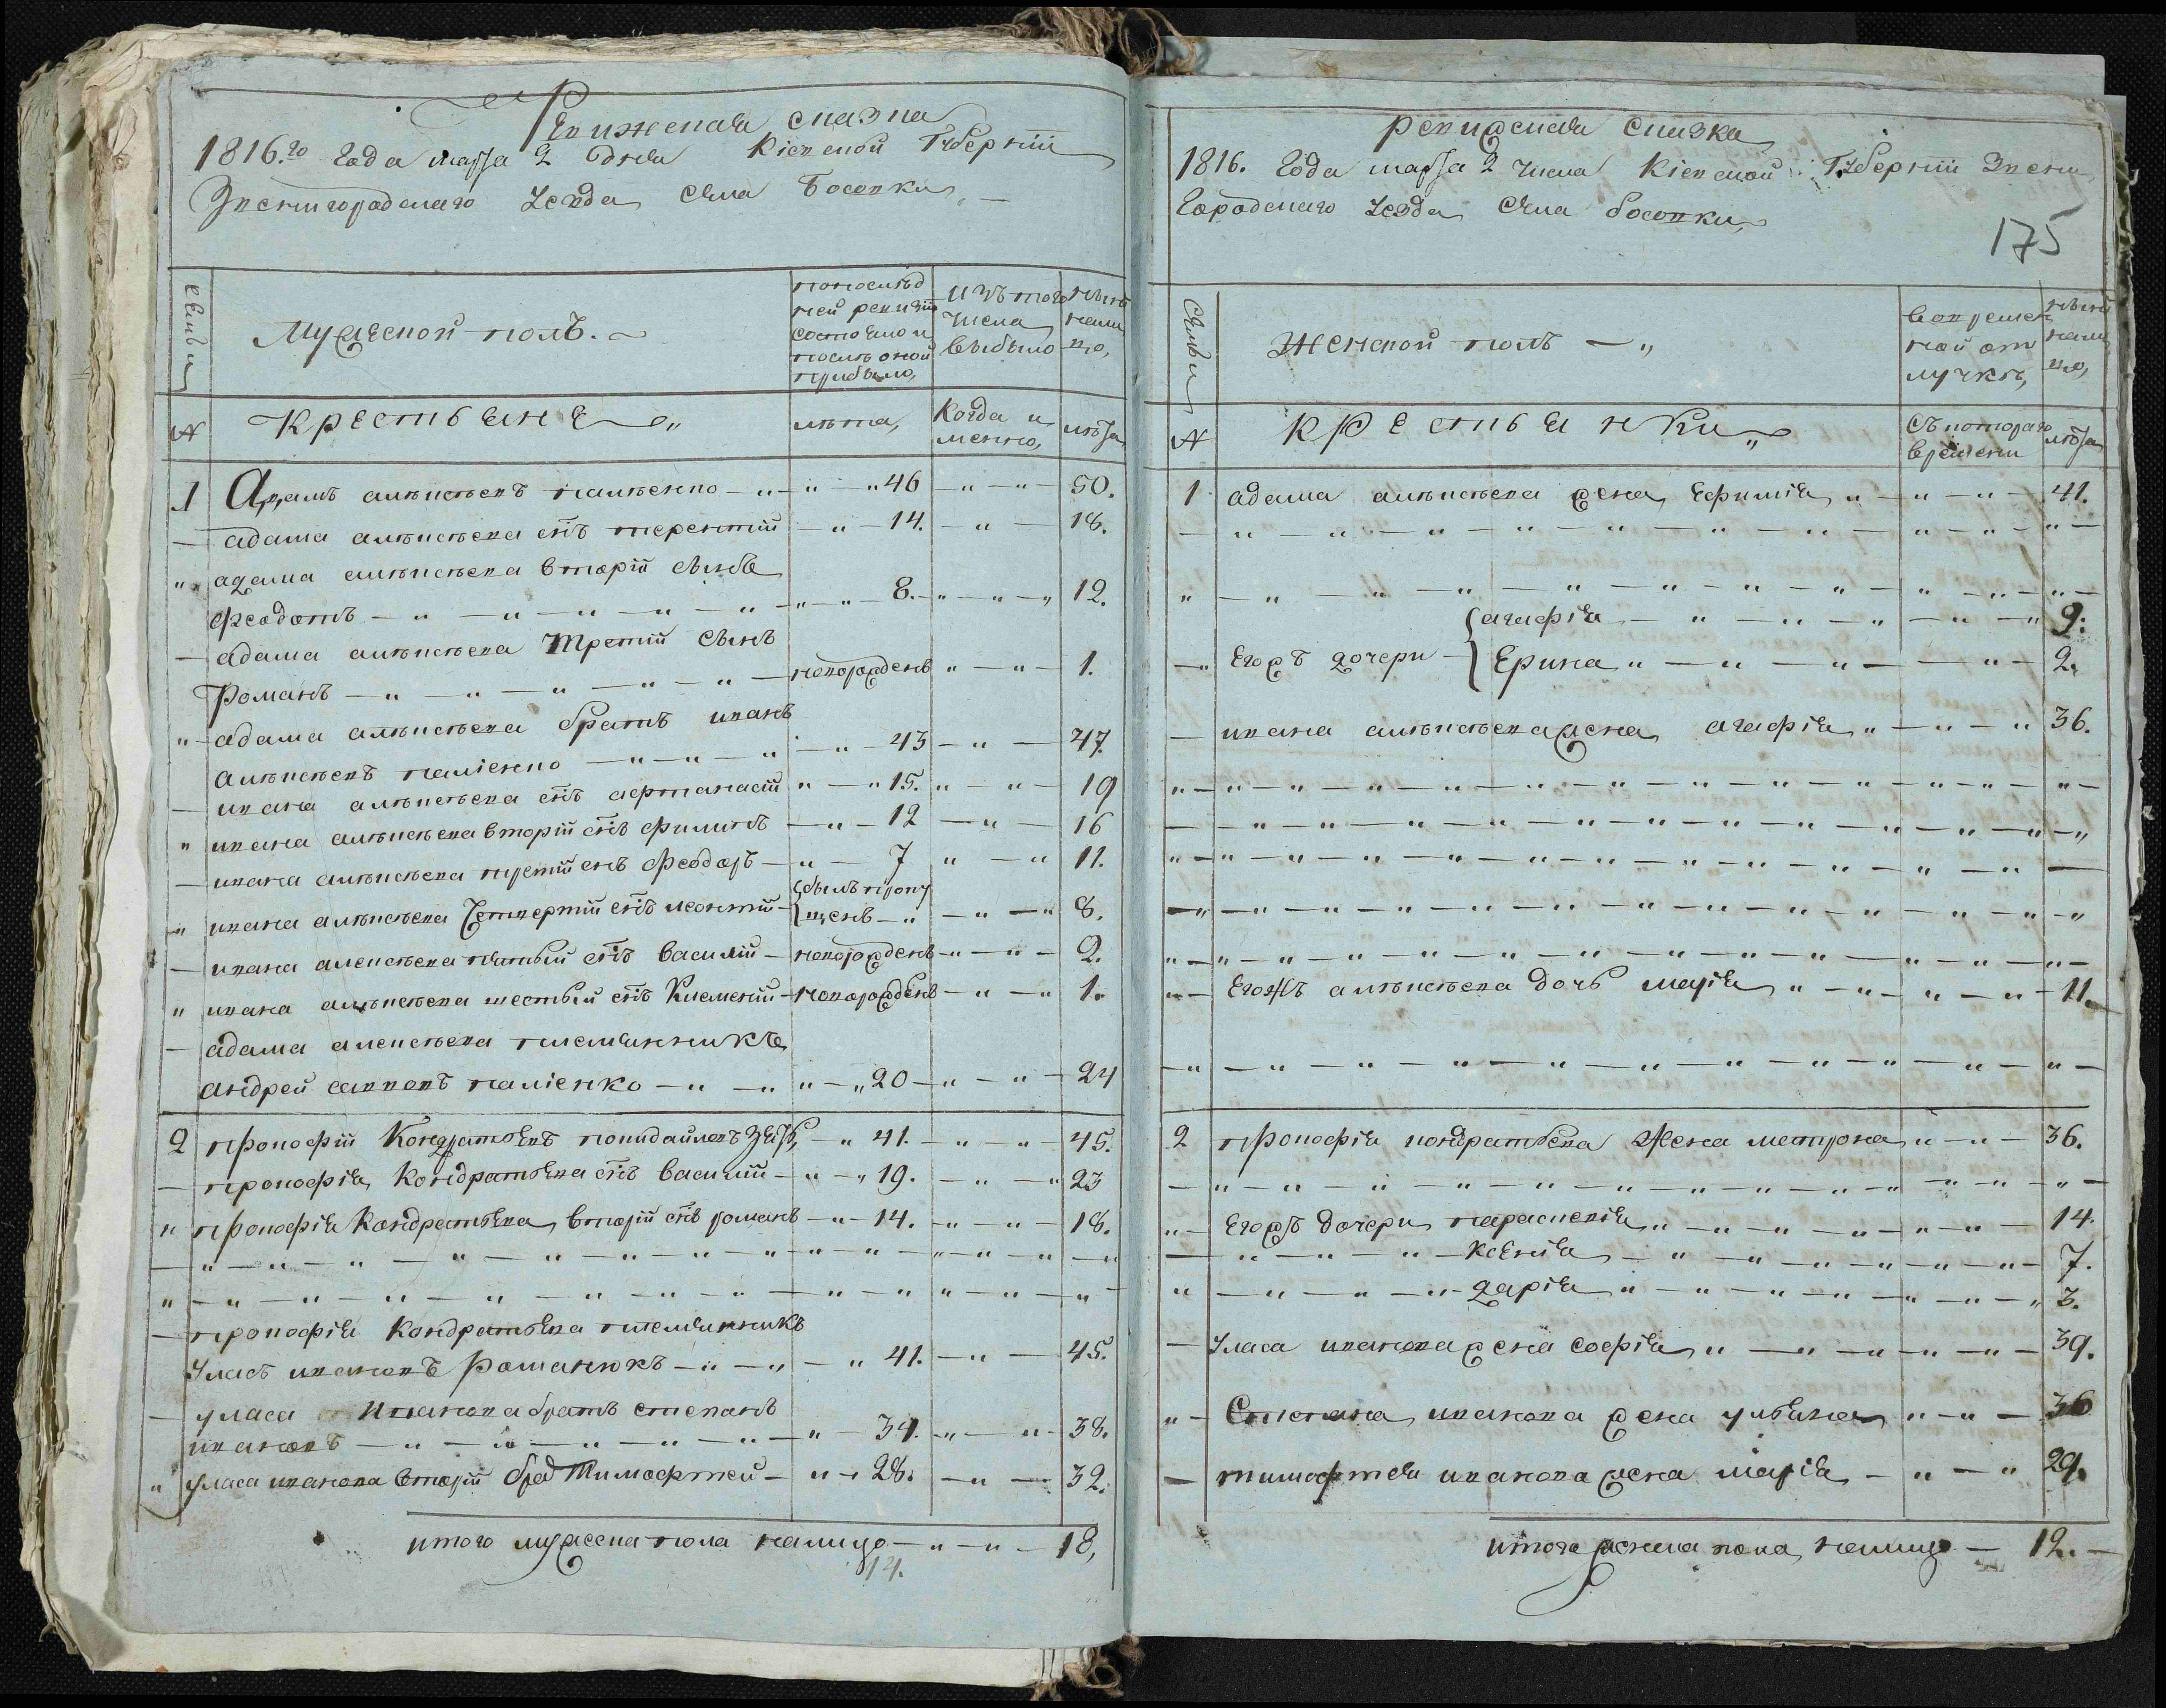 Ревижская сказка
1816.го года марта 2 дня Кіевской Губерніи
Звенигородскаго уезда села Босовки
семьи
Мужеской полъ.
попослѣд
ней ревизіи
состояло и
послѣ оной
прибыло,
изъ того
числа
выбыло
нынѣ
нали
цо,
№
Крестьяне
лѣта,
Когда и
менно,
лѣта
1 Адамъ алѣксѣевъ палѣенко 46 50.
адама алѣксѣева снъ терентій 14. 18.
адама алѣксѣева вторій сынъ
феодотъ 8. 12.
адама алѣксѣева третій сынъ
Романъ новорожденъ 1.
адама алѣксѣева братъ иванъ
алѣксѣевъ паліенко 43 47
ивана алѣксѣева снъ афтанасій 15. 19
ивана алѣксѣева вторій снъ филипъ 12 16
ивана алѣксѣева третій снъ феодоръ 7 11.
ивана алѣксѣева Четвертій снъ леонтій былъ пропу
щенъ 8.
ивана алексѣева пятый снъ василій новорожденъ 2.
ивана алѣксѣева шестый снъ Клементій новорожденъ 1.
адама алексѣева племянникъ
андрей саввовъ паліенко 20 24
2 прокофій Кондратьевъ зять 41. 45.
прокофія Кондратьева снъ василій 19. 23
прокофія Кондратьева вторій снъ романъ 14. 18.
прокофія Кондратьева племянникъ
Уласъ ивановъ Романюкъ 41. 45.
уласа Иванова братъ степанъ
ивановъ 34. 38.
уласа иванова вторій брат Тимофтей 28. 32.
итого мужеска пола налицо 18,
14.
ревижская сказка
1816. года марта 2 числа Кіевской Губерніи Звени
городскаго уезда села босовки
175
семьи
Женской полъ
вовремен
ной от
лучкѣ,
нынѣ
нали
цо,
№
Крестьянки
Съ котораго
времени
лѣта
1 адама алѣксѣева жена Ефимія 41.
агафія 9.
Егожъ дочери Ерина 2.
ивана алѣксѣева жена агафія 36.
Егожъ алѣксѣева дочь марія 11.
2 прокофія кондратьева жена матрона 36.
Егожъ дочери параскевія 14.
Ксенія 7.
дарія 3.
Уласа иванова жена софія 39.
Степана иванова жена ульяна 36
тимофтея иванова жена марія 29.
итого женска пола налицо 12.